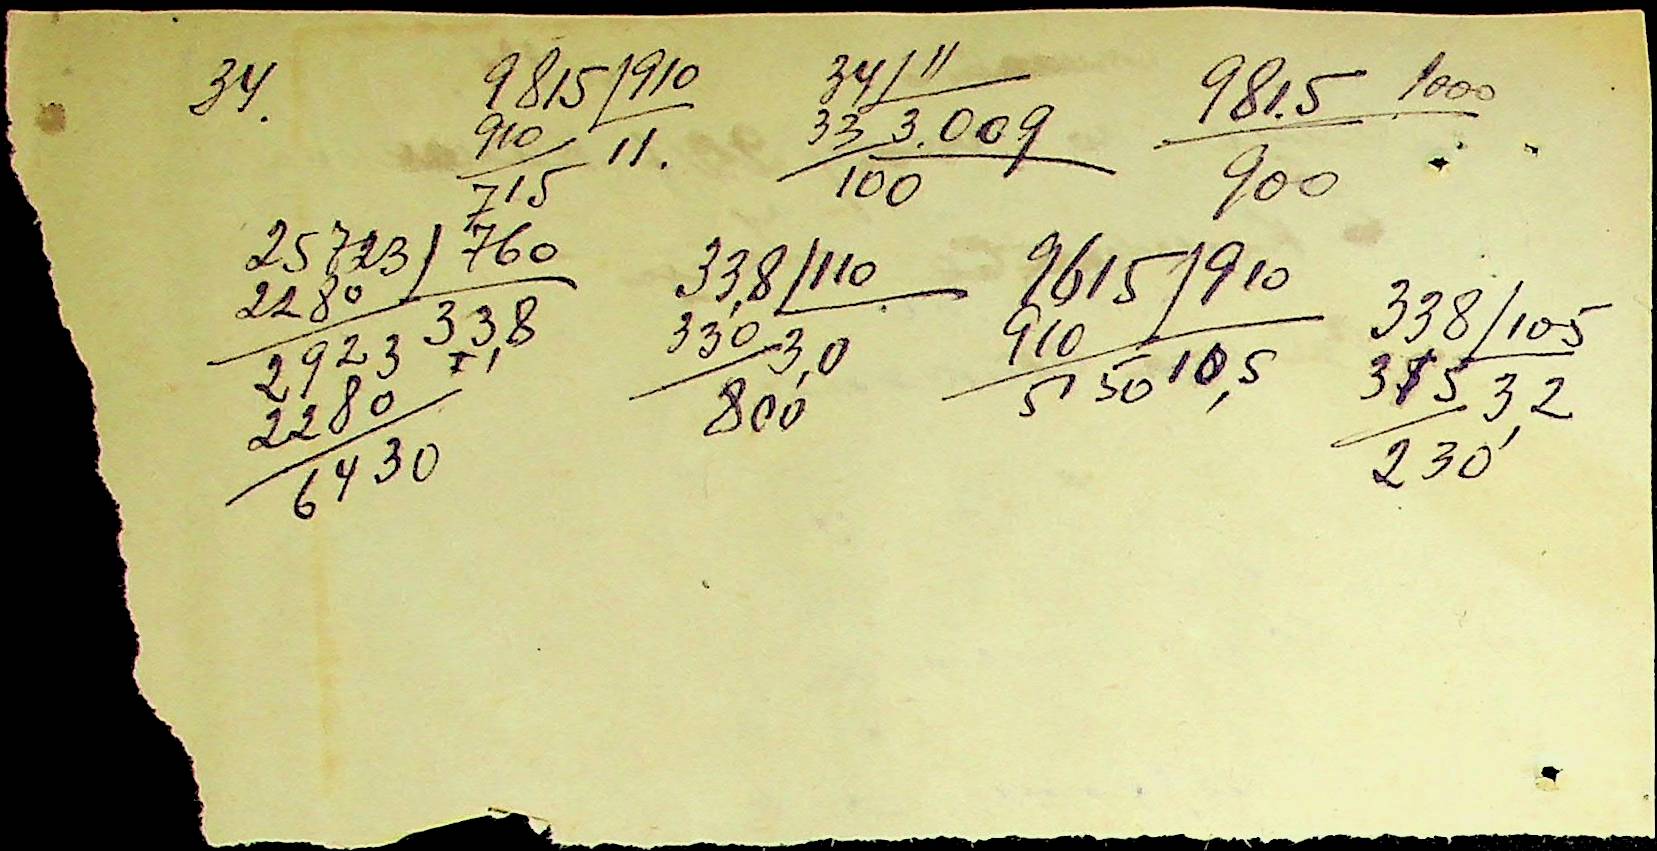 34. 9815/910 34/11 981.5 1000
910 11. 33 3.009 900
715 100
25723/760 33,8/110 9615/910 338/105
2280 33,8 330 3,0 910 10,5 315 3,2
2923 800 5150 230
2280
6430